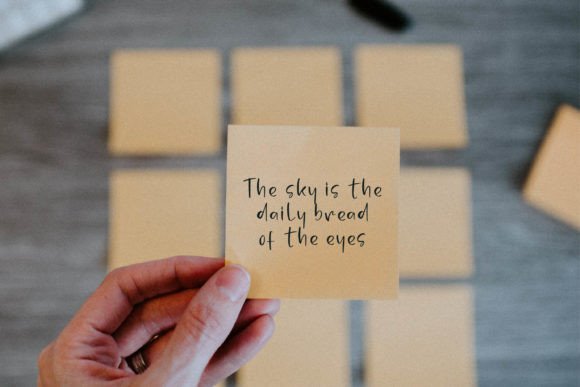 The sky is the
daily bread
of the eyes